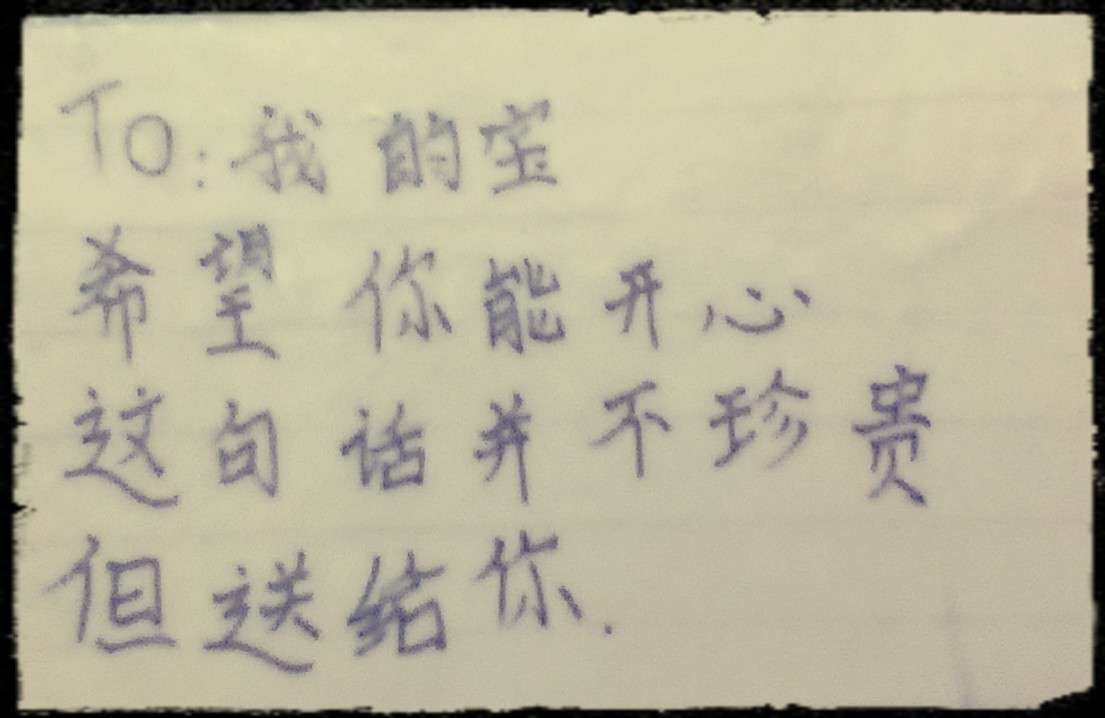 To:我的宝
希望你能开心
这句话并不珍贵
但送给你.